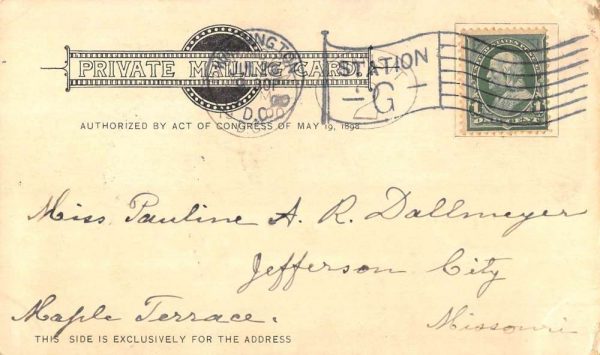 PRIVATE MAILING CARD
WASHINGTON
D.C.
STATION
G
AUTHORIZED BY ACT OF CONGRESS OF MAY 19, 1898
1 1
ONE CENT
Miss Pauline A. R. Dallmeyer
Jefferson City
Maple Terrace.
Missouri
THIS SIDE IS EXCLUSIVELY FOR THE ADDRESS